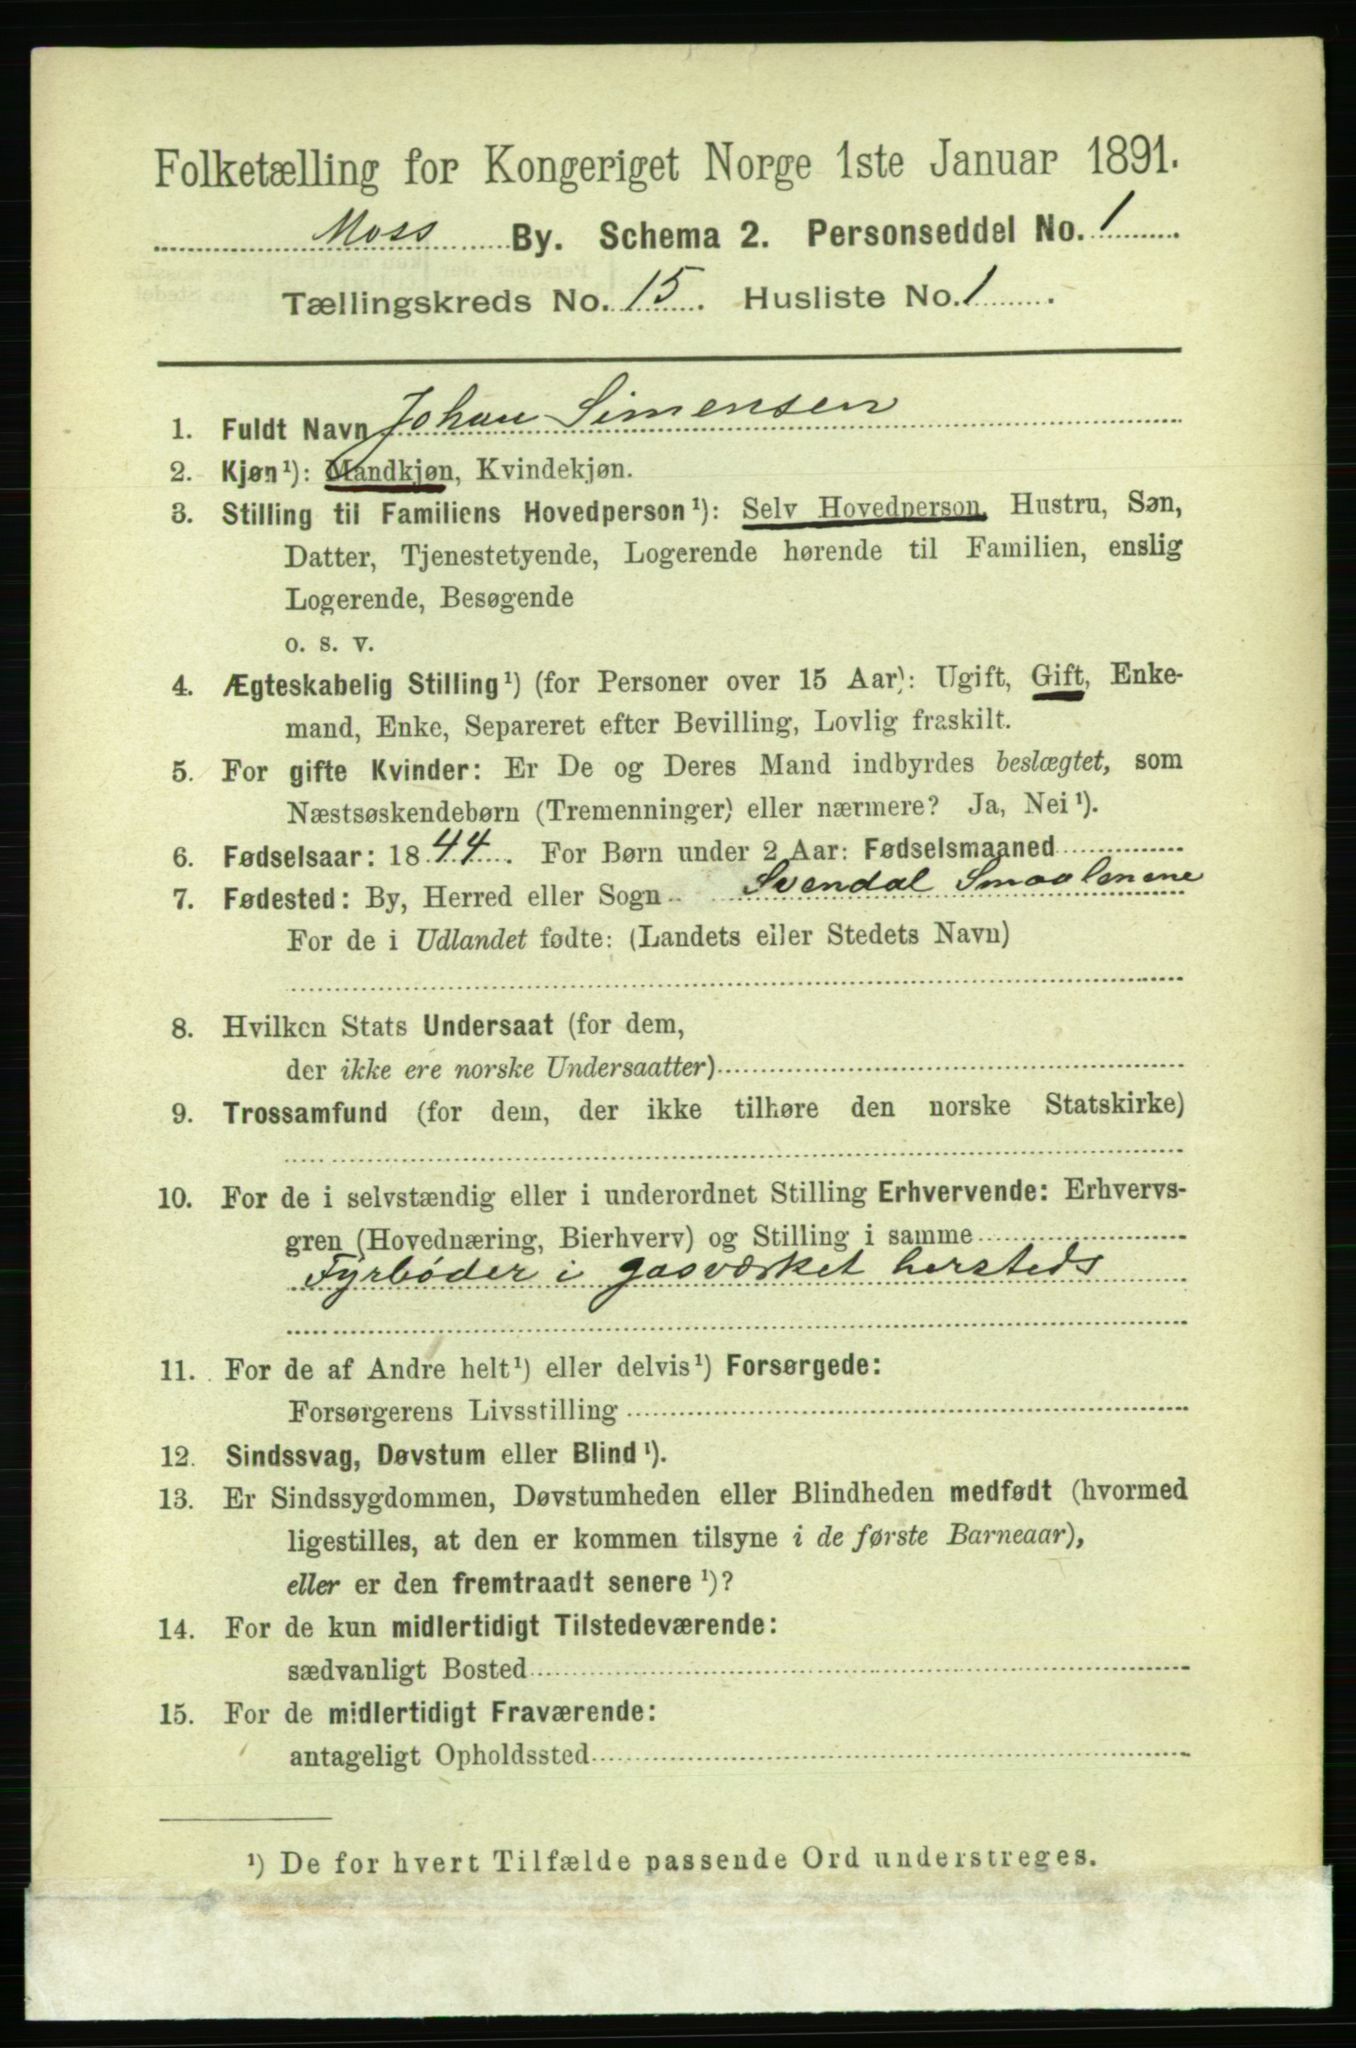 Folketælling for Kongeriget Norge 1ste Januar 1891.
Moss By. Schema 2. Personseddel No. 1
Tællingskreds No. 15. Husliste No. 1.
1. Fuldt Navn Johan Simensen
2. Kjøn¹): Mandkjøn, Kvindekjøn.
3. Stilling til Familiens Hovedperson¹): Selv Hovedperson, Hustru, Søn,
Datter, Tjenestetyende, Logerende hørende til Familien, enslig
Logerende, Besøgende
o. s. v.
4. Ægteskabelig Stilling¹) (for Personer over 15 Aar): Ugift, Gift, Enke-
mand, Enke, Separeret efter Bevilling, Lovlig fraskilt.
5. For gifte Kvinder: Er De og Deres Mand indbyrdes beslægtet, som
Næstsøskendebørn (Tremenninger) eller nærmere? Ja, Nei¹).
6. Fødselsaar: 1844. For Børn under 2 Aar: Fødselsmaaned
7. Fødested: By, Herred eller Sogn Svendal Smaalenene
For de i Udlandet fødte: (Landets eller Stedets Navn)
8. Hvilken Stats Undersaat (for dem,
der ikke ere norske Undersaatter)
9. Trossamfund (for dem, der ikke tilhøre den norske Statskirke)
10. For de i selvstændig eller i underordnet Stilling Erhvervende: Erhvervs-
gren (Hovednæring, Bierhverv) og Stilling i samme
Fyrbøder i gasværket hersteds
11. For de af Andre helt¹) eller delvis¹) Forsørgede:
Forsørgerens Livsstilling
12. Sindssvag, Døvstum eller Blind¹).
13. Er Sindssygdommen, Døvstumheden eller Blindheden medfødt (hvormed
ligestilles, at den er kommen tilsyne i de første Barneaar),
eller er den fremtraadt senere¹)?
14. For de kun midlertidigt Tilstedeværende:
sædvanligt Bosted
15. For de midlertidigt Fraværende:
antageligt Opholdssted
¹) De for hvert Tilfælde passende Ord understreges.